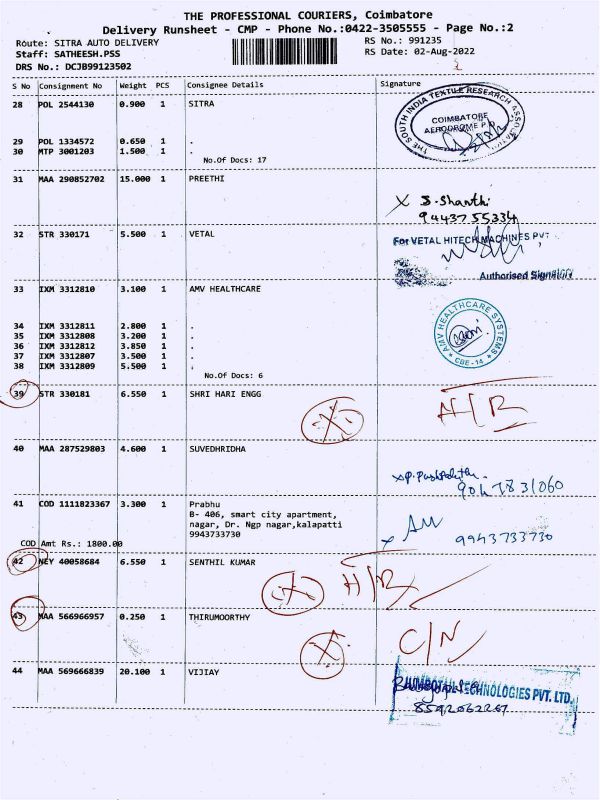 THE PROFESSIONAL COURIERS, Coimbatore
Delivery Runsheet - CMP - Phone No.:0422-3505555 - Page No.:2
Route: SITRA AUTO DELIVERY
RS No.: 991235
Staff: SATHEESH.PSS
RS Date: 02-Aug-2022
DRS No.: DCJB99123502
S No Consignment No Weight PCS Consignee Details Signature
28 POL 2544130 0.900 1 SITRA
THE SOUTH INDIA TEXTILE RESEARCH ASSOCIATION
COIMBATORE
AERODROME P.O
29 POL 1334572 0.650 1 .
30 MTP 3001203 1.500 1 .
No.Of Docs: 17
31 MAA 290852702 15.000 1 PREETHI
X S. Shanthi
94437 55334
32 STR 330171 5.500 1 VETAL
For VETAL HITECH MACHINES PVT
Authorised Signatory
33 IXM 3312810 3.100 1 AMV HEALTHCARE
AMV HEALTHCARE SYSTEMS
CBE-14
34 IXM 3312811 2.800 1 .
35 IXM 3312808 3.200 1 .
36 IXM 3312812 3.850 1 .
37 IXM 3312807 3.500 1 .
38 IXM 3312809 5.500 1 .
No.Of Docs: 6
39 STR 330181 6.550 1 SHRI HARI ENGG
X
H/R
40 MAA 287529803 4.600 1 SUVEDHRIDHA
X P.
90
31060
41 COD 1111823367 3.300 1 Prabhu
B- 406, smart city apartment,
nagar, Dr. Ngp nagar,kalapatti
9943733730
X
9943733730
COD Amt Rs.: 1800.00
42 NEY 40058684 6.550 1 SENTHIL KUMAR
X
H/R
43 MAA 566966957 0.250 1 THIRUMOORTHY
X
C/N
44 MAA 569666839 20.100 1 VIJIAY
TECHNOLOGIES PVT. LTD.
8592062267